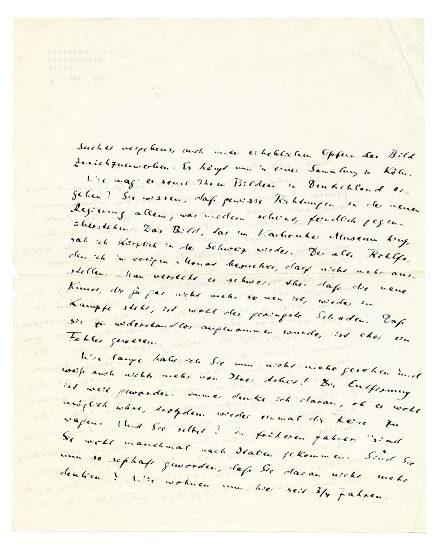 suchte vergebens, auch unter erheblichen Opfern das Bild
zurückzuerwerben. Es hängt nun in einer Sammlung in Köln.
Wie mag es sonst Ihren Bildern in Deutschland er-
gehen? Sie wissen, daß gewisse Richtungen in der neuen
Regierung allem, was modern scheint, feindlich gegen-
überstehen. Das Bild, das im Karlsruher Museum hing,
sah ich kürzlich in der Schweiz wieder. Der alte Rohlfs,
den ich im vorigen Monat besuchte, darf nicht mehr aus-
stellen. Man versteht es schwer. Aber daß die neue
Kunst, die ja gar nicht mehr so neu ist, wieder im
Kampfe steht, ist wohl der geringste Schaden. Daß
sie zu widerstandslos angenommen wurde, ist eher ein
Fehler gewesen.
Wie lange habe ich Sie nun nicht mehr gesehen und
weiß auch nichts mehr von Ihrer Arbeit! Die Entfernung
ist weit geworden. Immer denke ich daran, ob es wohl
möglich wäre, trotzdem wieder einmal die Reise zu
wagen. Und Sie selbst? In früheren Jahren sind
Sie wohl manchmal nach Italien gekommen. Sind Sie
nun so seßhaft geworden, daß Sie daran nicht mehr
denken? Wir wohnen nun hier seit 3/4 Jahren.